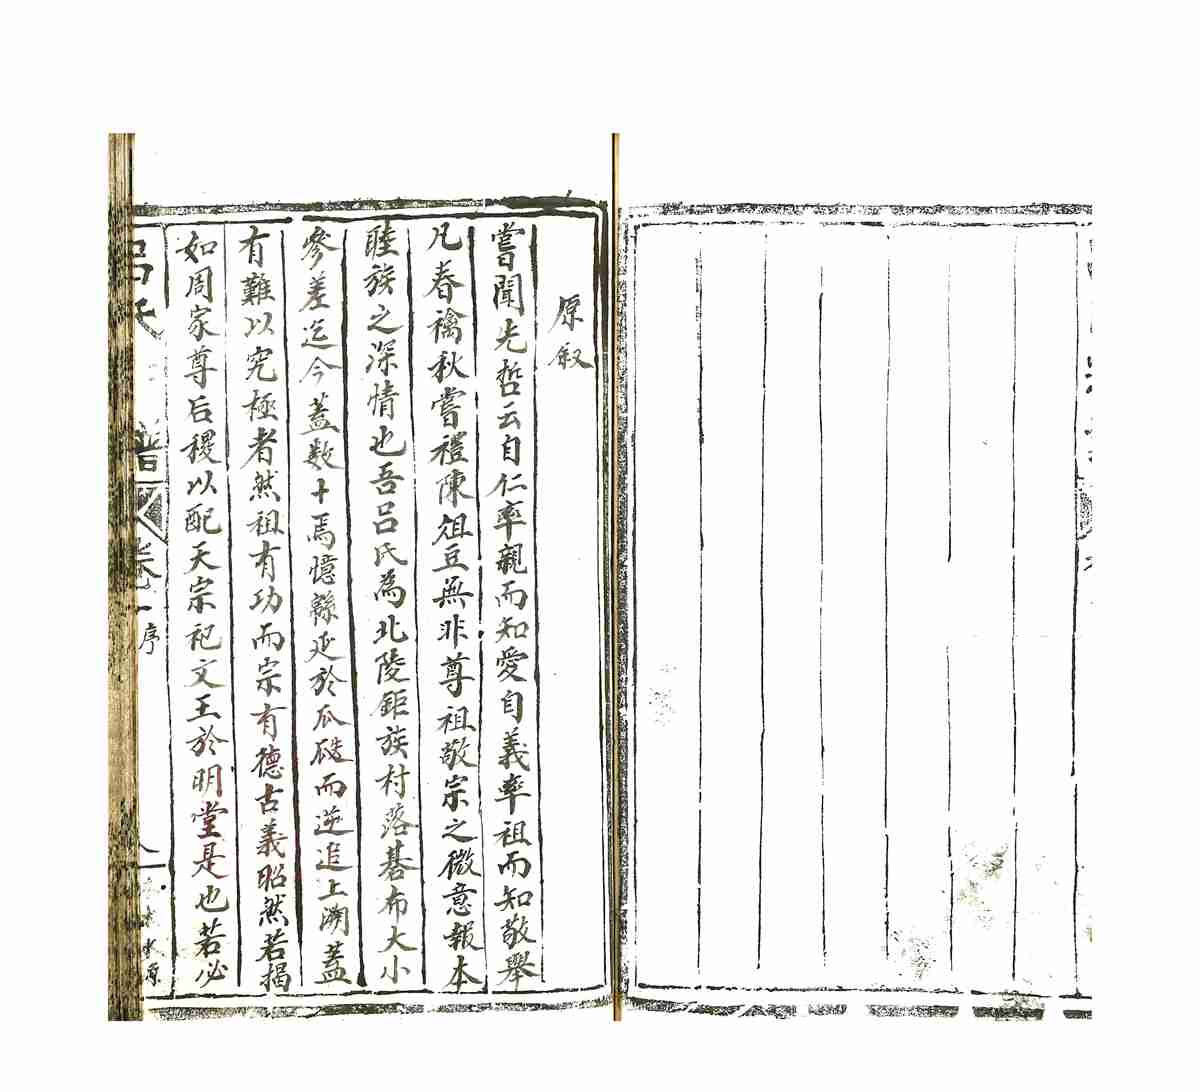 原叙
嘗聞先哲云自仁率親而知愛自義率祖而知敬舉
凡春禴秋嘗禮陳俎豆無非尊祖敬宗之微意報本
睦族之深情也吾吕氏為北陵鉅族村落碁布大小
參差迄今蓋数十焉憶緜延於瓜瓞而逆追上溯蓋
有難以究極者然祖有功而宗有德古義昭然若揭
如周家尊后稷以配天宗祀文王於明堂是也若必
吕氏 譜 卷一 序